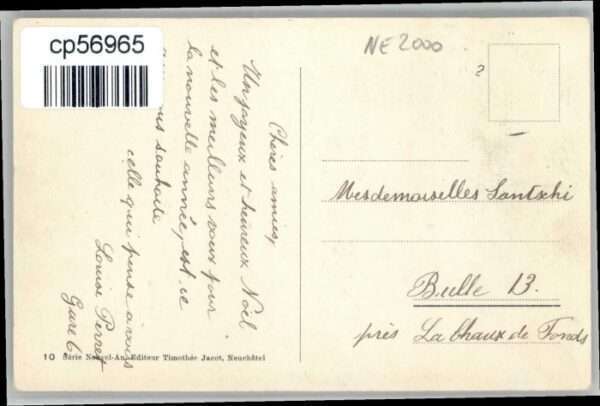 cp56965
NE 2000
2
Chères amies,
Un joyeux et heureux Noël
et les meilleurs vœux pour
la nouvelle année, est ce
vous souhaite
celle qui pense à vous
Louise Perret
Gare 6
Mesdemoiselles Lantschi
Bulle 13.
près La Chaux de Fonds
10 Série Nouvel-An, Editeur Timothée Jacot, Neuchâtel